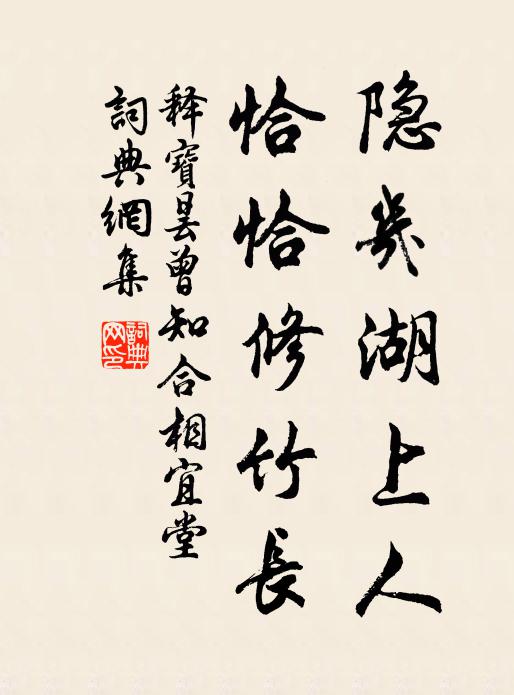 隐幾湖上人
恰恰修竹長
释寶昙曾知合相宜堂
詞典網集
詞典網印